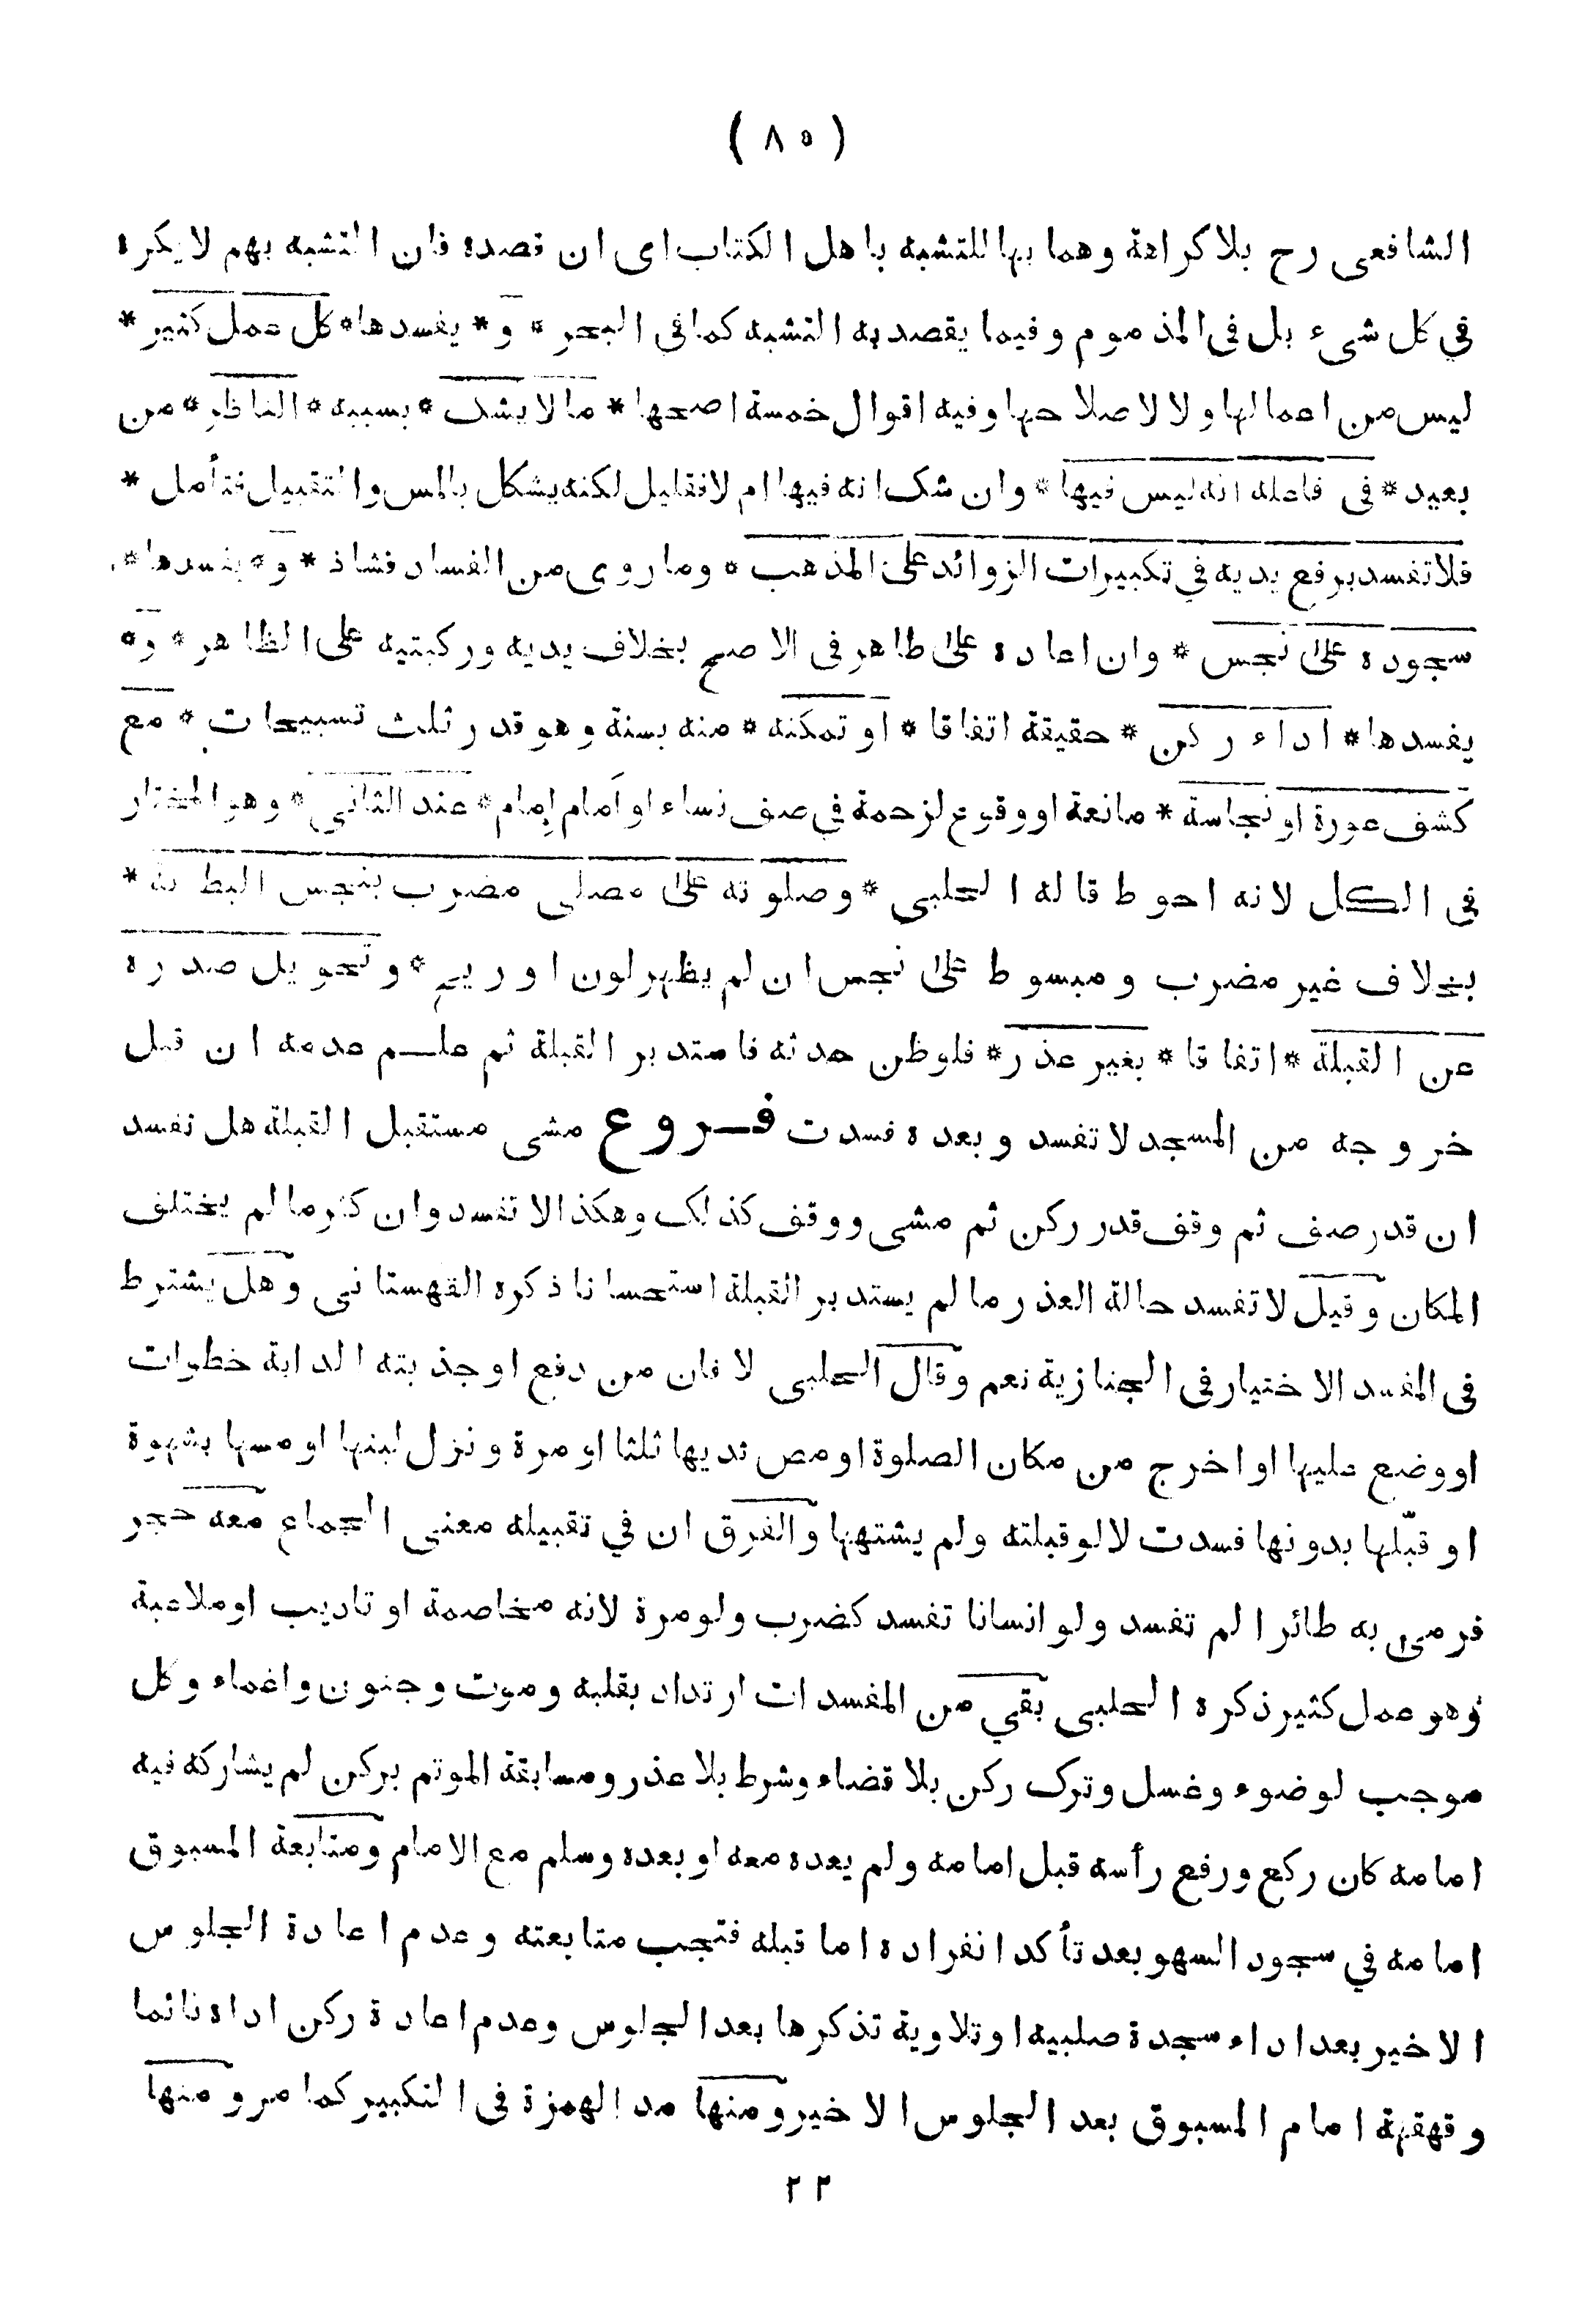 ( ٨٥ )
الشافعى رح بلا كراهة وهما بها للتشبه باهل الكتاب اى ان قصده فان التشبه بهم لا يكره
في كل شىء بل فى المذموم وفيما يقصد به التشبه كما فى البحر * و * يفسدها * كل عمل كثير *
ليس من اعمالها ولا لاصلاحها وفيه اقوال خمسة اصحها * ما لا يشك * بسببه * الناظر * من
بعيد * فى فاعله انه ليس فيها * وان شك انه فيها ام لا فقليل لكنه يشكل بالمس والتقبيل فتأمل *
فلا تفسد برفع يديه في تكبيرات الزوائد على المذهب * وما روى من الفساد فشاذ * و * يفسدها *
سجوده على نجس * وان اعاده على طاهر فى الاصح بخلاف يديه وركبتيه على الظاهر * و *
يفسدها * اداء ركن * حقيقة اتفاقا * او تمكنه * منه بسنة وهو قدر ثلث تسبيحات * مع
كشف عورة او نجاسة * مانعة او وقوع لزحمة في صف نساء او اَمام اِمام * عند الثاني * وهو المختار
فى الكل لانه احوط قاله الحلبى * وصلوته على مصلى مضرب بنجس البطانة *
بخلاف غير مضرب ومبسوط على نجس ان لم يظهر لون او ريح * وتحويل صدره
عن القبلة * اتفاقا * بغير عذر * فلو ظن حدثه فاستدبر القبلة ثم علم عدمه ان قبل
خروجه من المسجد لا تفسد وبعده فسدت فروع مشى مستقبل القبلة هل تفسد
ان قدر صف ثم وقف قدر ركن ثم مشى ووقف كذلك وهكذا لا تفسد وان كثر ما لم يختلف
المكان وقيل لا تفسد حالة العذر ما لم يستدبر القبلة استحسانا ذكره القهستانى وهل يشترط
فى المفسد الاختيار فى الجنازية نعم وقال الحلبى لا فان من دفع او جذبته الدابة خطوات
او وضع عليها او اخرج من مكان الصلوة او مص ثديها ثلثا او مرة ونزل لبنها او مسها بشهوة
او قبّلها بدونها فسدت لا لو قبلته ولم يشتهها والفرق ان في تقبيله معنى الجماع معه حجر
فرمى به طائرا لم تفسد ولو انسانا تفسد كضرب ولو مرة لانه مخاصمة او تاديب او ملاعبة
وهو عمل كثير ذكره الحلبى بقي من المفسدات ارتداد بقلبه وموت وجنون واغماء وكل
موجب لوضوء وغسل وترك ركن بلا قضاء وشرط بلا عذر ومسابقة الموتم بركن لم يشاركه فيه
امامه كان ركع ورفع رأسه قبل امامه ولم يعده معه او بعده وسلم مع الامام ومتابعة المسبوق
امامه في سجود السهو بعد تأكد انفراده اما قبله فتجب متابعته وعدم اعادة الجلوس
الاخير بعد اداء سجدة صلبيه او تلاوية تذكرها بعد الجلوس وعدم اعادة ركن اداه نائما
وقهقهة امام المسبوق بعد الجلوس الاخير ومنها مد الهمزة فى التكبير كما مر ومنها
٢٢